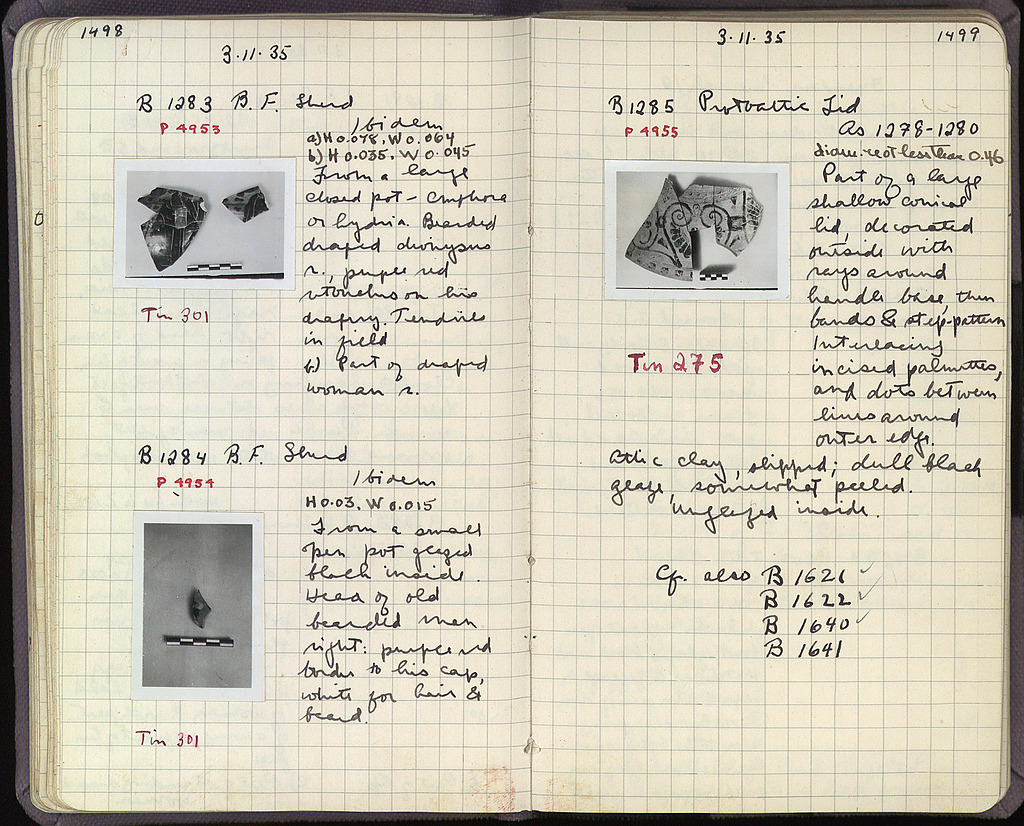 1498
3·11·35
B 1283 B. F. Sherd
P 4953
Ibidem
a) H 0.078, W 0.064
b) H 0.035, W 0.045
From a large
closed pot - amphora
or hydria. Bearded
draped dionysus
r., purple red
on his
drapery. Tendrils
in field
b) Part of draped
woman r.
Tin 301
B 1284 B. F. Sherd
P 4954
Ibidem
H 0.03, W 0.015
From a small
open pot glazed
black inside.
Head of old
bearded man
right: purple red
border to his cap,
white for hair &
beard.
Tin 301
3·11·35
1499
B 1285 Protoattic Lid
P 4955
As 1278-1280
diam. rest less than 0.46
Part of a large
shallow conical
lid, decorated
outside with
rays around
handle base, then
bands & step-pattern
Interlacing
incised palmettes,
and dots between
lines around
outer edge.
Attic clay, slipped; dull black
glaze, somewhat peeled.
Unglazed inside.
Tin 275
Cf. also B 1621
B 1622
B 1640
B 1641